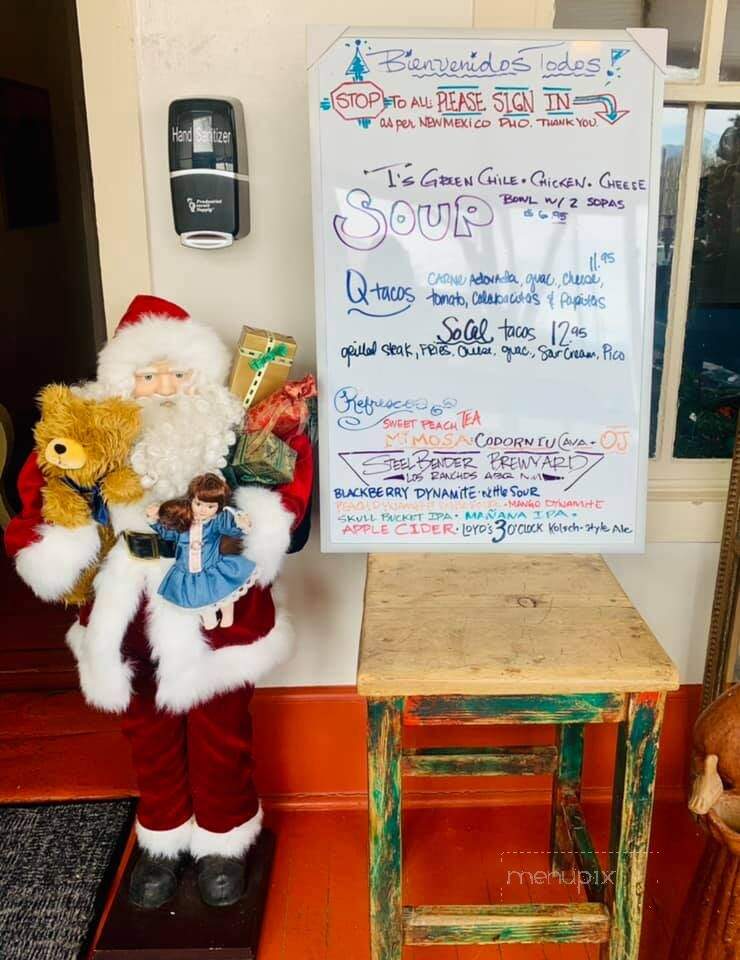 Bienvenidos Todos!
STOP TO ALL: PLEASE SIGN IN
as per NEW MEXICO PHO. THANK YOU.
Hand Sanitizer
T's GREEN CHILE • CHICKEN • CHEESE
SOUP BOWL W/ 2 SOPAS
$6.95
11.95
Q tacos CARNE Adovada, guac., cheese,
tomato, Calabacitas & Papitas
SoCal tacos 12.95
grilled steak, FRIES, cheese, guac., Sour Cream, Pico
Refrescos
SWEET PEACH TEA
MIMOSA: CODORNIU CAVA + OJ
STEEL BENDER BREWYARD
LOS RANCHOS ABQ N.M.
BLACKBERRY DYNAMITE • Nettle SOUR
PEACH DYNAMITE • MANGO DYNAMITE
SKULL BUCKET IPA • MAÑANA IPA •
APPLE CIDER • LOYD'S 3 O'CLOCK Kolsch-Style Ale
menupix